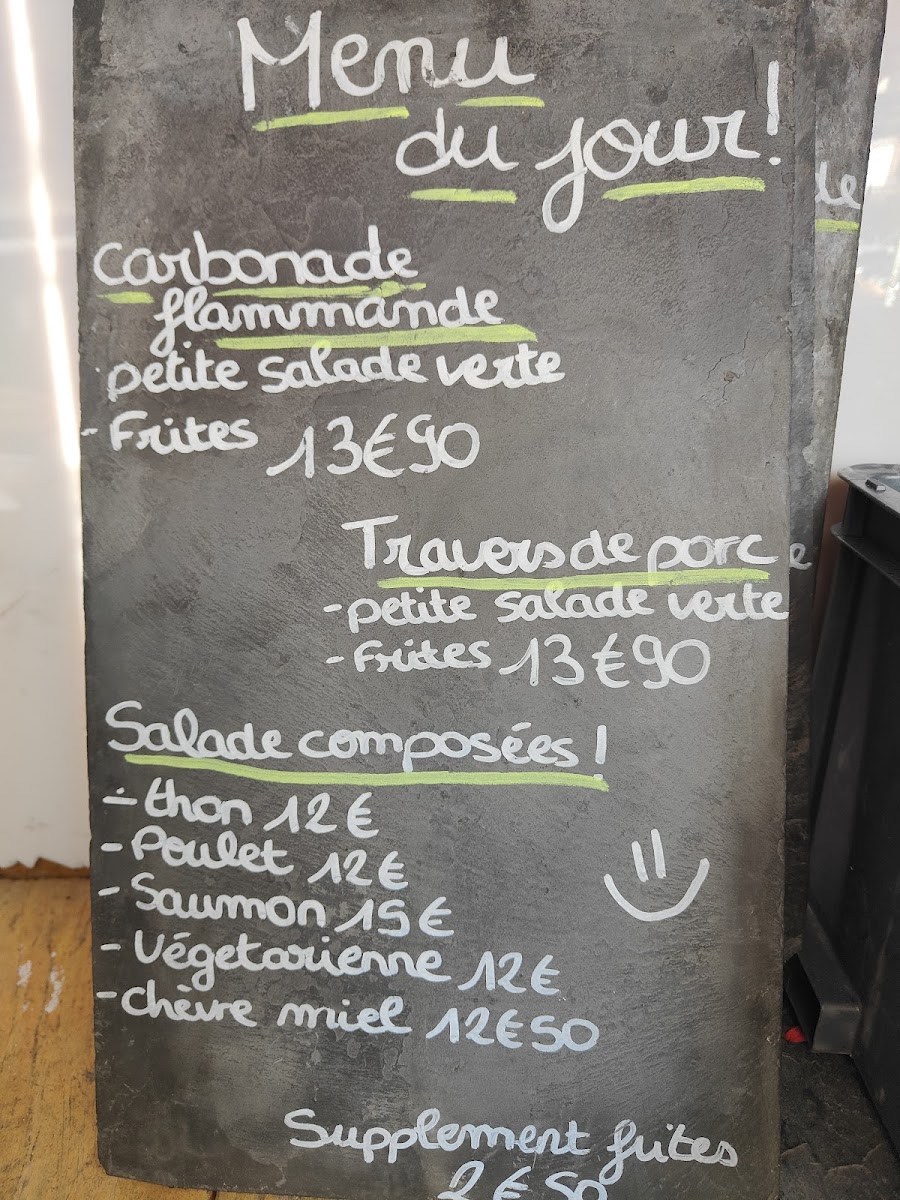 Menu
du jour!
Carbonade
flammande
petite salade verte
- Frites 13€90
Travers de porc
- petite salade verte
- Frites 13€90
Salade composées!
- thon 12€
- Poulet 12€
- Saumon 15€
- Végetarienne 12€
- chèvre miel 12€50
Supplement frites
2€50